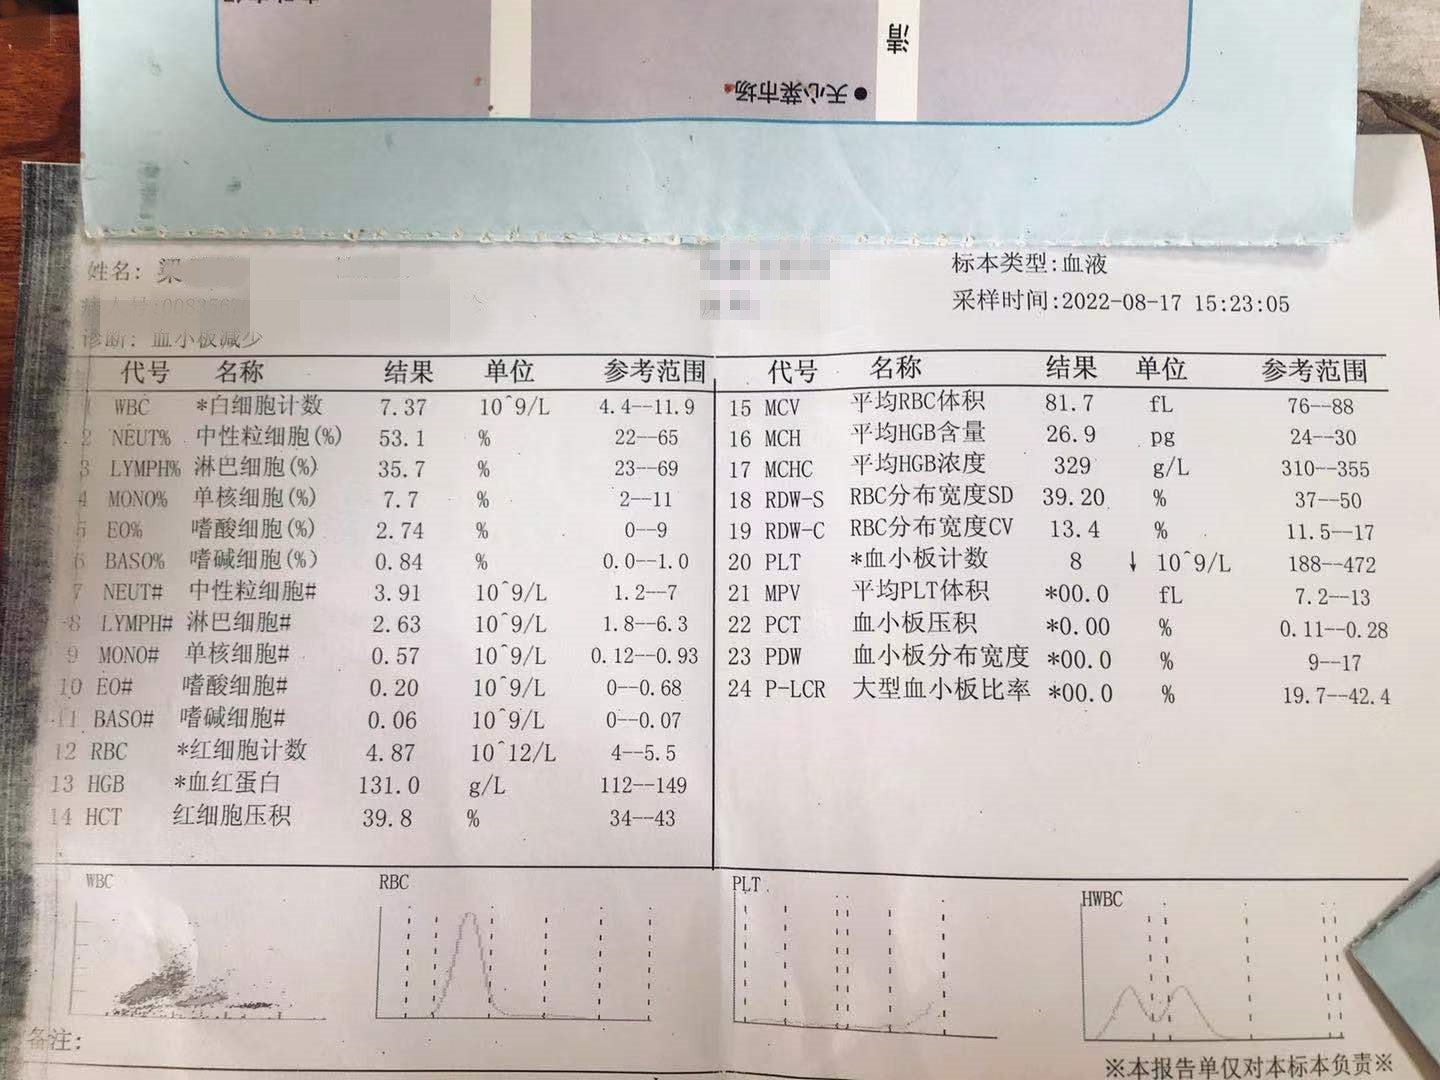 清
●天心菜市场
姓名: 梁
标本类型:血液
采样时间:2022-08-17 15:23:05
诊断: 血小板减少
代号 名称 结果 单位 参考范围
1 WBC *白细胞计数 7.37 10^9/L 4.4--11.9
2 NEUT% 中性粒细胞(%) 53.1 % 22--65
3 LYMPH% 淋巴细胞(%) 35.7 % 23--69
4 MONO% 单核细胞(%) 7.7 % 2--11
5 EO% 嗜酸细胞(%) 2.74 % 0--9
6 BASO% 嗜碱细胞(%) 0.84 % 0.0--1.0
7 NEUT# 中性粒细胞# 3.91 10^9/L 1.2--7
8 LYMPH# 淋巴细胞# 2.63 10^9/L 1.8--6.3
9 MONO# 单核细胞# 0.57 10^9/L 0.12--0.93
10 EO# 嗜酸细胞# 0.20 10^9/L 0--0.68
11 BASO# 嗜碱细胞# 0.06 10^9/L 0--0.07
12 RBC *红细胞计数 4.87 10^12/L 4--5.5
13 HGB *血红蛋白 131.0 g/L 112--149
14 HCT 红细胞压积 39.8 % 34--43
代号 名称 结果 单位 参考范围
15 MCV 平均RBC体积 81.7 fL 76--88
16 MCH 平均HGB含量 26.9 pg 24--30
17 MCHC 平均HGB浓度 329 g/L 310--355
18 RDW-S RBC分布宽度SD 39.20 % 37--50
19 RDW-C RBC分布宽度CV 13.4 % 11.5--17
20 PLT *血小板计数 8 ↓ 10^9/L 188--472
21 MPV 平均PLT体积 *00.0 fL 7.2--13
22 PCT 血小板压积 *0.00 % 0.11--0.28
23 PDW 血小板分布宽度 *00.0 % 9--17
24 P-LCR 大型血小板比率 *00.0 % 19.7--42.4
WBC
RBC
PLT
HWBC
备注:
※本报告单仅对本标本负责※